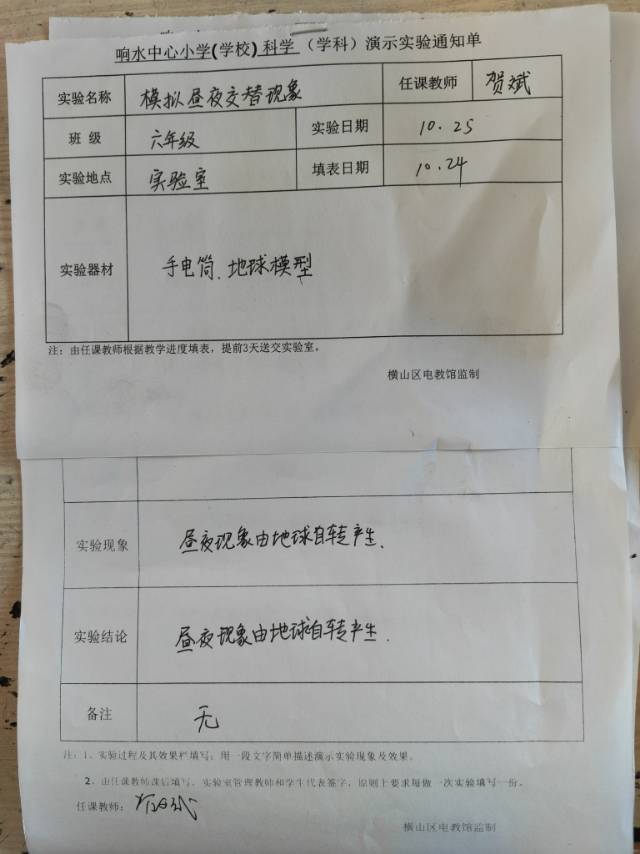 响水中心小学(学校)科学（学科）演示实验通知单
实验名称 模拟昼夜交替现象 任课教师 贺斌
班 级 六年级 实验日期 10.25
实验地点 实验室 填表日期 10.24
实验器材 手电筒、地球模型
注：由任课教师根据教学进度填表，提前3天送交实验室。
横山区电教馆监制
实验现象 昼夜现象由地球自转产生.
实验结论 昼夜现象由地球自转产生.
备注 无
注：1、实验过程及其效果栏填写：用一段文字简单描述演示实验现象及效果。
2、由任课教师课后填写，实验室管理教师和学生代表签字，原则上要求每做一次实验填写一份。
任课教师：
横山区电教馆监制